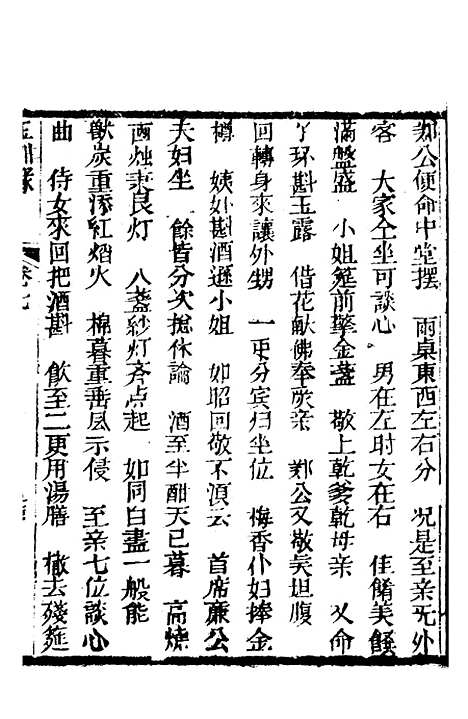 鄭公便命中堂擺　兩桌東西左右分　况是至亲无外
客　大家仝坐可談心　男在左时女在右　佳餚美饌
滿盤盛　小姐筵前擎金盞　敬上乾爹乾母亲　乂命
了环斟玉露　借花献佛奉嚴亲　鄭公又敬吴坦腹
回轉身來讓外甥　一帀分宾归坐位　梅香仆妇捧金
樽　姨妙斟酒遞小姐　如昭回敬不湏云　首席亷公
夫妇坐　餘皆分次捴休論　酒至半酣天已暮　高燒
画烛秉良灯　八盞紗灯斉点起　如同白晝一般能
獸炭重添紅熖火　棉暮重垂凨示侵　至亲七位談心
曲　侍女來回把酒斟　飲至二更用湯膳　撤去殘筵
玉釧縁　卷七